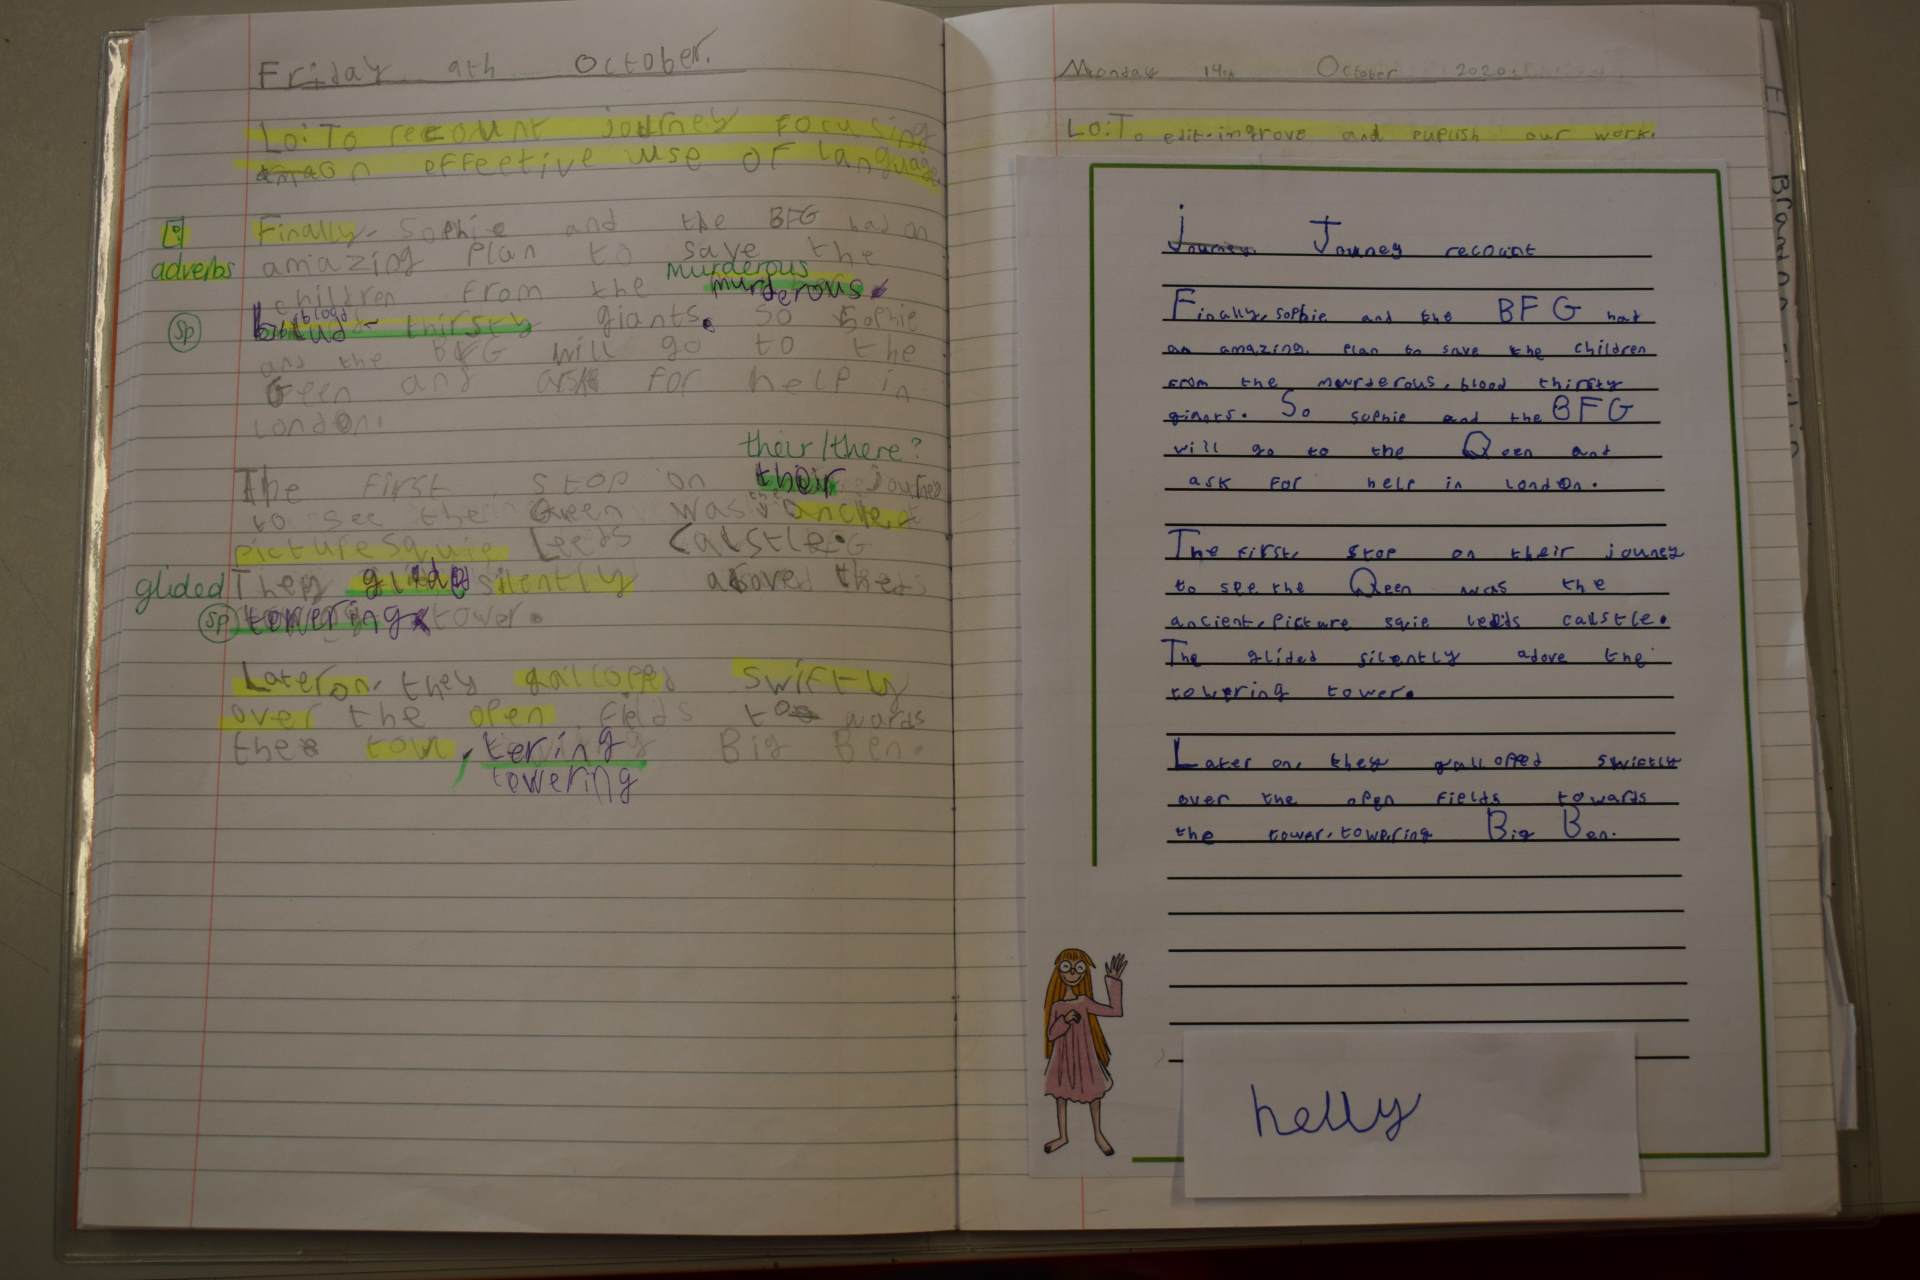 Friday 9th October.
LO: To recount journey focusing
on effective use of language
adverbs
Finally, Sophie and the BFG had an
amazing plan to save the
murderous
children from the murderous,
sp
blood
thirsty giants. So Sophie
and the BFG will go to the
Qeen and ask for help in
London.
their/there?
The first stop on their jouney
to see the Qeen was the ancient
picturesquie Leeds Calstle.
glided
They glided silently above the
sp
towering tower.
Later on, they galloped swiftly
over the open fields to wards
the tow, tering Big Ben.
towering
Monday 14th October 2020
LO: To edit-improve and puplish our work.
Journey Journey recount
Finally, sophie and the BFG had
an amazing, plan to save the children
from the murderous, blood thirsty
ginats. So sophie and the BFG
will go to the Qeen and
ask for help in london.
The first, stop on their jouney
to see the Qeen was the
ancient, picture squie leeds calstle.
The glided silently adove the
towering tower.
Later on, they galloped swiftly
over the open fields towards
the tower, towering Big Ben.
helly